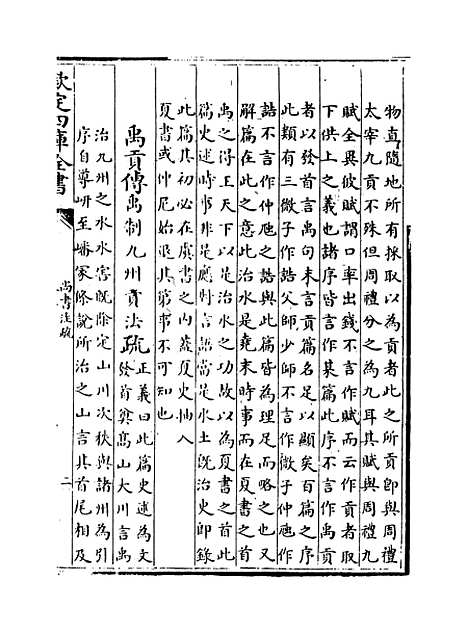 物直隨地所有採取以為貢者此之所貢即與周禮
太宰九貢不殊但周禮分之為九耳其賦與周禮九
賦全異彼賦謂口率出錢不言作賦而云作貢者取
下供上之義也諸序皆言作某篇此序不言作禹貢
者以發首言禹句末言貢篇名足以顯矣百篇之序
此類有三微子作誥父師少師不言作微子仲虺作
誥不言作仲虺之誥與此篇皆為理足而略之也又
解篇在此之意此治水是堯末時事而在夏書之首
禹之得王天下以是治水之功故以為夏書之首此
篇史述時事非是應對言語當是水土既治史即錄
此篇其初必在虞書之內蓋夏史抽入
夏書或仲尼始退其第事不可知也
禹貢傳禹制九州貢法疏正義曰此篇史述為文發首奠高山大川言禹
治九州之水水害既除定山川次秩與諸州為引
序自導岍至嶓冢條說所治之山言其首尾相及
欽定四庫全書
尚書注疏
二